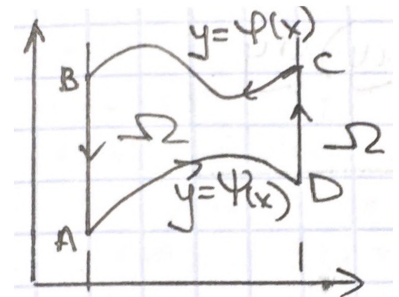 y=φ(x)
B
C
Ω
Ω
y=Ψ(x)
D
A